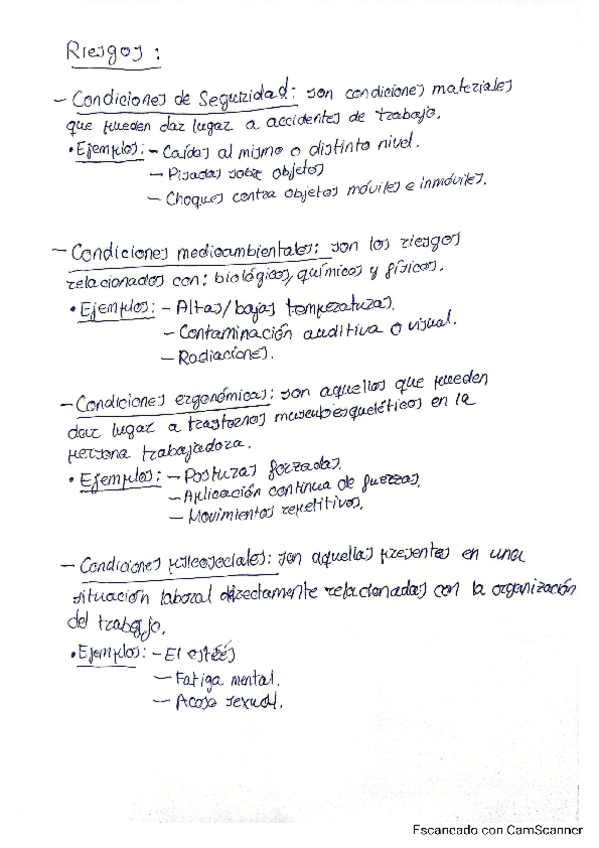 Riesgos:
- Condiciones de Seguridad: son condiciones materiales
que pueden dar lugar a accidentes de trabajo.
• Ejemplos: - Caídas al mismo o distinto nivel.
- Pisadas sobre objetos
- Choques contra objetos móviles e inmóviles.
- Condiciones medioambientales: son los riesgos
relacionados con: biológicos, químicos y físicos.
• Ejemplos: - Altas/bajas temperaturas.
- Contaminación auditiva o visual.
- Radiaciones.
- Condiciones ergonómicas: son aquellos que pueden
dar lugar a trastornos musculoesqueléticos en la
persona trabajadora.
• Ejemplos: - Posturas forzadas.
- Aplicación continua de fuerzas.
- Movimientos repetitivos.
- Condiciones psicosociales: son aquellas presentes en una
situación laboral directamente relacionadas con la organización
del trabajo.
• Ejemplos: - El estrés
- Fatiga mental.
- Acoso sexual.
Escaneado con CamScanner